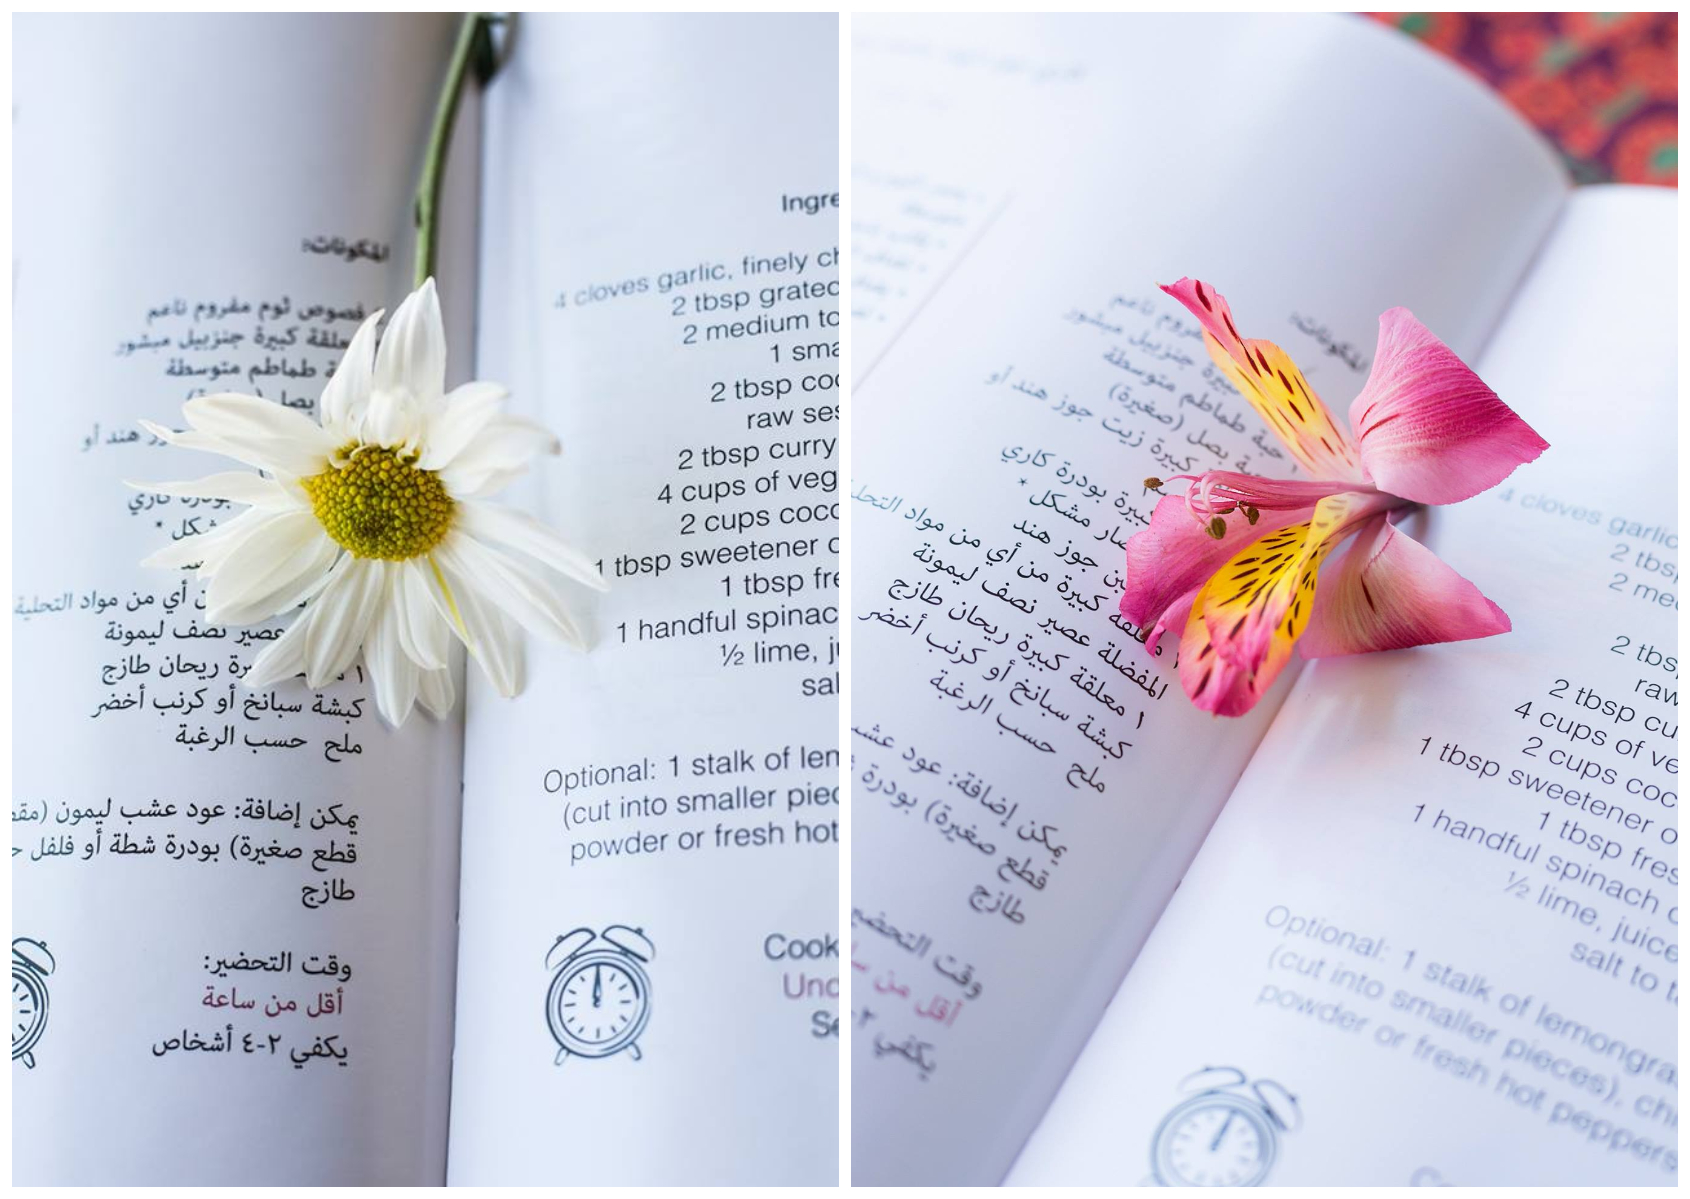 المكونات:
فصوص ثوم مفروم ناعم
ملعقة كبيرة جنزبيل مبشور
طماطم متوسطة
بصل (صغيرة)
هند أو
بودرة كاري
مشكل *
أي من مواد التحلية
عصير نصف ليمونة
١ ريحان طازج
كبشة سبانخ أو كرنب أخضر
ملح حسب الرغبة
يمكن إضافة: عود عشب ليمون (مقط
قطع صغيرة) بودرة شطة أو فلفل ح
طازج
وقت التحضير:
أقل من ساعة
يكفي ٢-٤ أشخاص
Ingre
4 cloves garlic, finely ch
2 tbsp grated
2 medium to
1 sma
2 tbsp coc
raw ses
2 tbsp curry
4 cups of veg
2 cups coco
1 tbsp sweetener o
1 tbsp fre
1 handful spinac
½ lime, ju
sal
Optional: 1 stalk of lem
(cut into smaller piec
powder or fresh hot
Cook
Und
Se
المكونات:
مفروم ناعم
كبيرة جنزبيل مبشور
حبة طماطم متوسطة
بصل (صغيرة)
كبيرة زيت جوز هند أو
كبيرة بودرة كاري
مشكل *
جوز هند
ملعقة كبيرة من أي من مواد التحلي
المفضلة عصير نصف ليمونة
١ معلقة كبيرة ريحان طازج
كبشة سبانخ أو كرنب أخضر
ملح حسب الرغبة
يمكن إضافة: عود عشب
قطع صغيرة) بودرة
طازج
وقت التحضير
أقل من سا
يكفي ٢-
4 cloves garlic
2 tbsp
2 med
2 tbs
raw
2 tbsp cu
4 cups of ve
2 cups coc
1 tbsp sweetener o
1 tbsp fres
1 handful spinach o
½ lime, juice
salt to t
Optional: 1 stalk of lemongra
(cut into smaller pieces), chi
powder or fresh hot peppers
Co